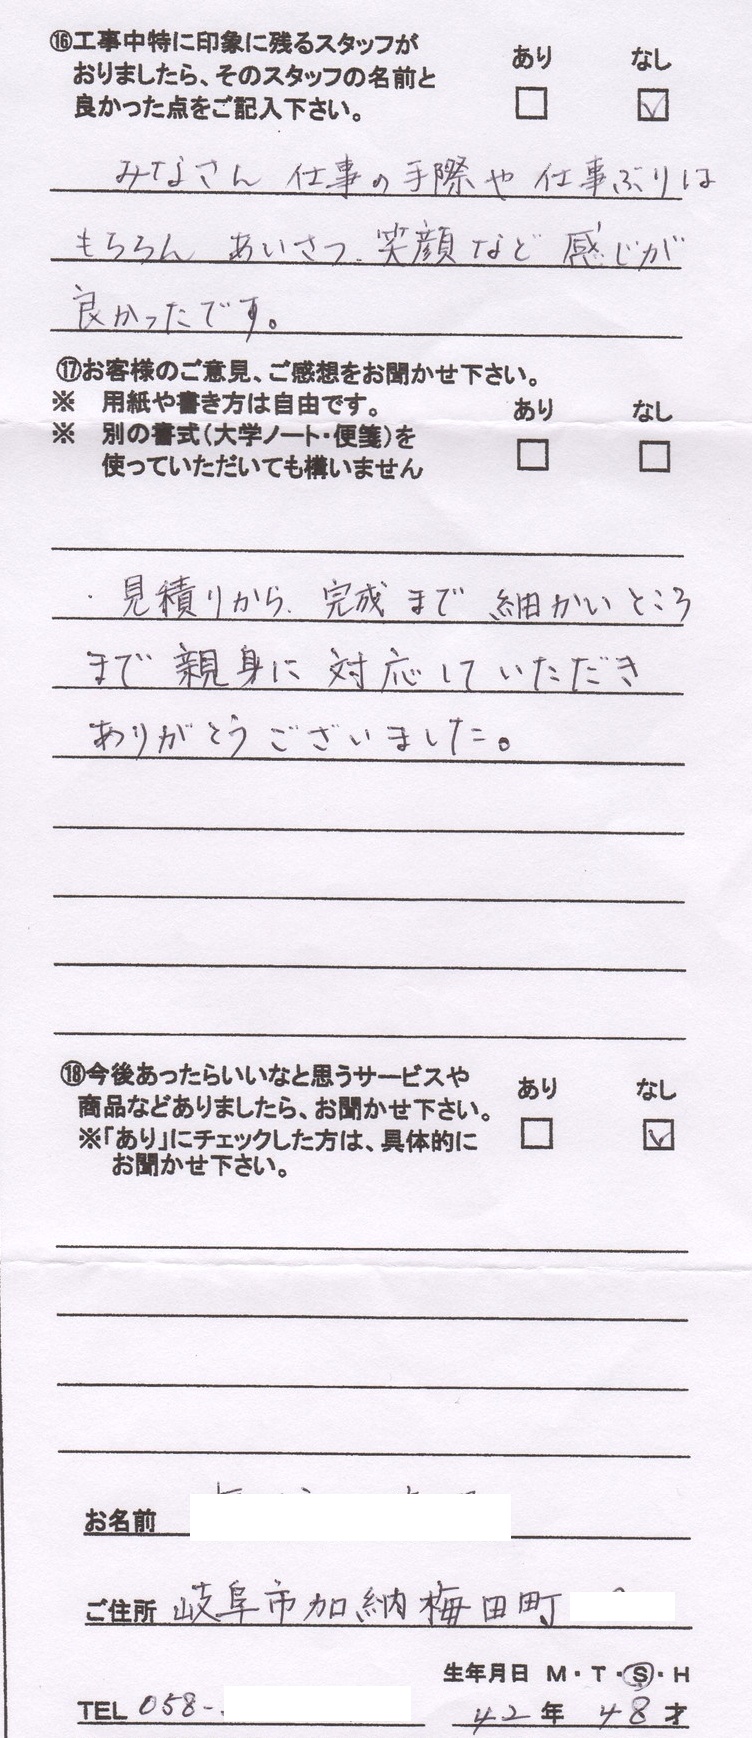 ⑯工事中特に印象に残るスタッフが
おりましたら、そのスタッフの名前と
良かった点をご記入下さい。
あり なし
みなさん 仕事の手際や 仕事ぶりは
もちろん あいさつ、笑顔など 感じが
良かったです。
⑰お客様のご意見、ご感想をお聞かせ下さい。
※ 用紙や書き方は自由です。
※ 別の書式（大学ノート・便箋）を
使っていただいても構いません
あり なし
・見積りから、完成まで 細かいところ
まで 親身に 対応していただき
ありがとうございました。
⑱今後あったらいいなと思うサービスや
商品などありましたら、お聞かせ下さい。
※「あり」にチェックした方は、具体的に
お聞かせ下さい。
あり なし
お名前
ご住所 岐阜市加納梅田町
生年月日 M・T・S・H
TEL 058-
42年 48才